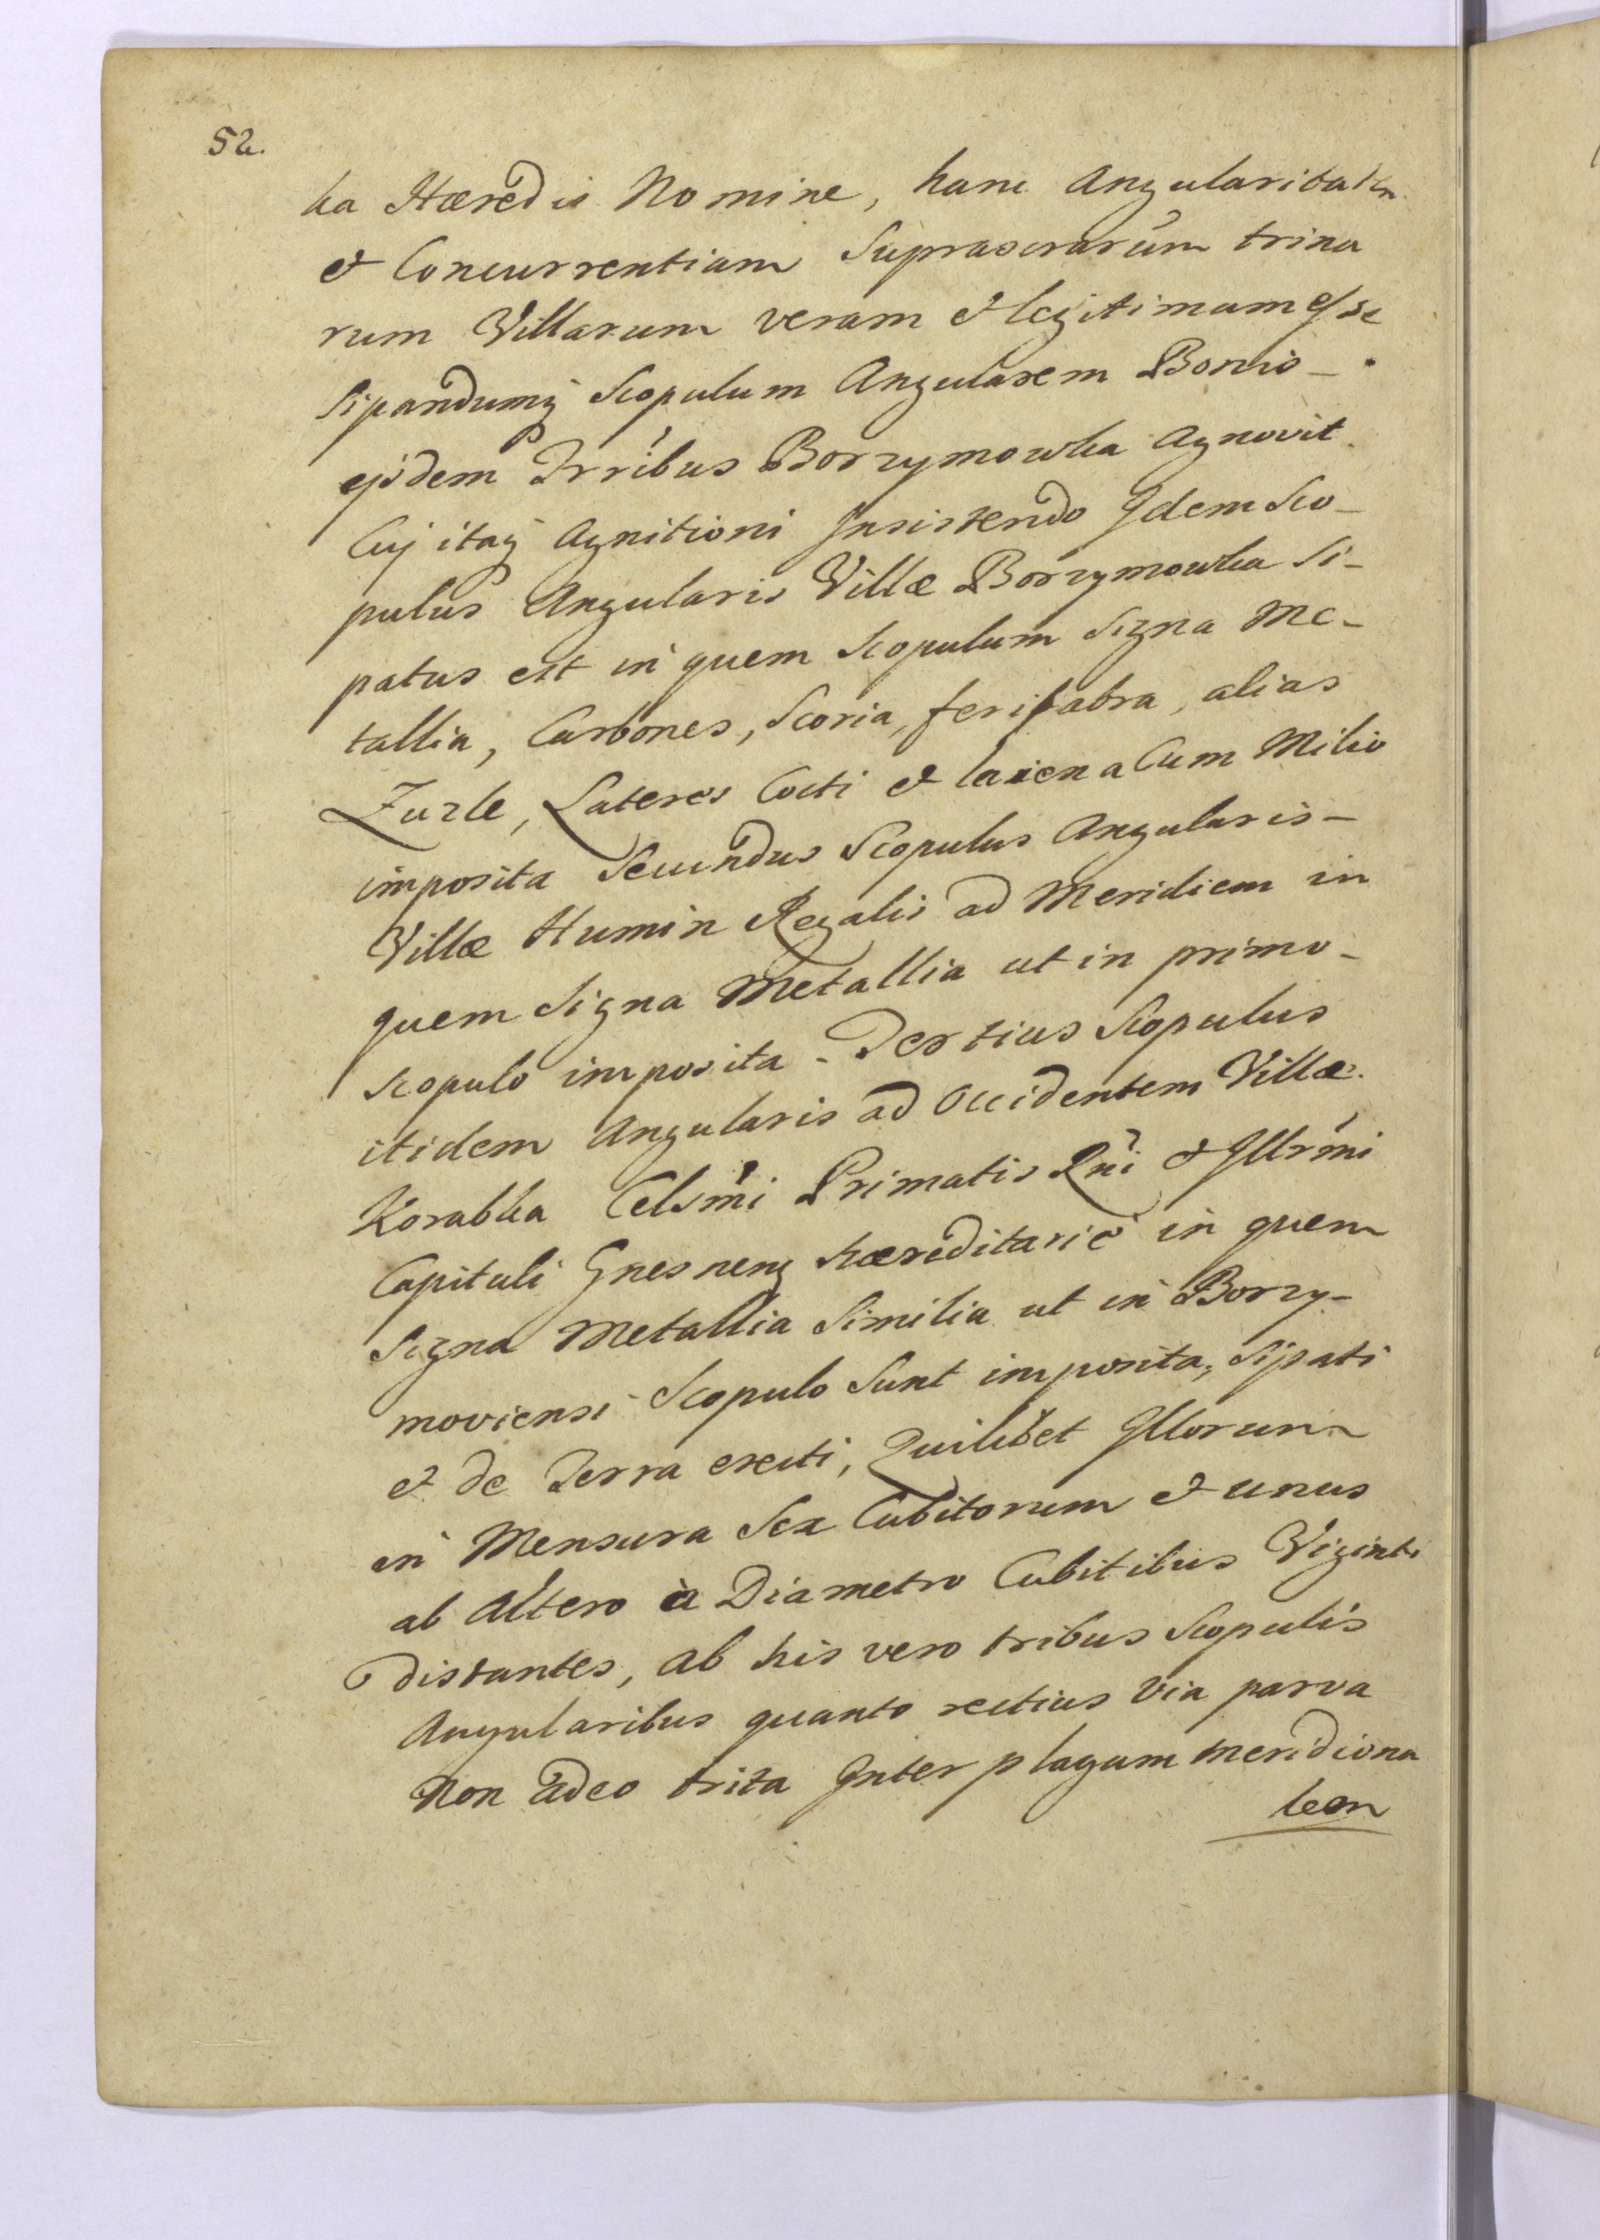 52.
ka Hæredis Nomine, hanc Angularitatem
et Concurrentiam Suprascrarum trina
rum Villarum veram et legitimam esse
Sipandumq Scopulum Angularem Bonis
ejsdem Trribus Borzymowka Agnovit.
Cuj itaq Agnitioni Insistendo Idem Sco-
pulus Angularis Villæ Borzymowka Si-
patus est in quem Scopulum Signa Me-
tallia, Carbones, Scoria, ferifabra, alias
Zuzle, Lateres Cocti et laiena Cum Milio
imposita Secundus Scopulus Angularis-
Villæ Humin Regalis ad Meridiem in
quem Signa Metallia ut in primo-
scopulo imposita. Tertius Scopulus
itidem Angularis ad Occidentem Villæ
Korabka Celsmi Primatis Rni et Illrmi
Capituli Gnesnens hæreditarie in quem
Signa Metallia Similia ut in Borzy-
moviensi Scopulo Sunt imposita, Sipati
et de Terra erecti, Quilibet Illorum
in Mensura Sex Cubitorum et unus
ab altero a Diametro Cubitibus Viginti
distantes, ab his vero tribus Scopulis
Angularibus quanto rectius Via parva
Non adeo trita Inter plagam meridiona
lem